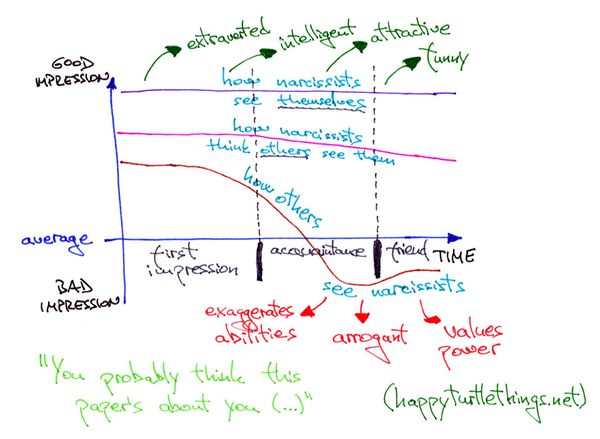 extraverted
intelligent
attractive
funny
GOOD
IMPRESSION
how narcissists
see themselves
how narcissists
think others see them
how others
average
first
impression
acquaintance
friend
TIME
BAD
IMPRESSION
see narcissists
exaggerates
abilities
arrogant
values
power
"You probably think this
paper's about you (...)"
(happyturtlethings.net)